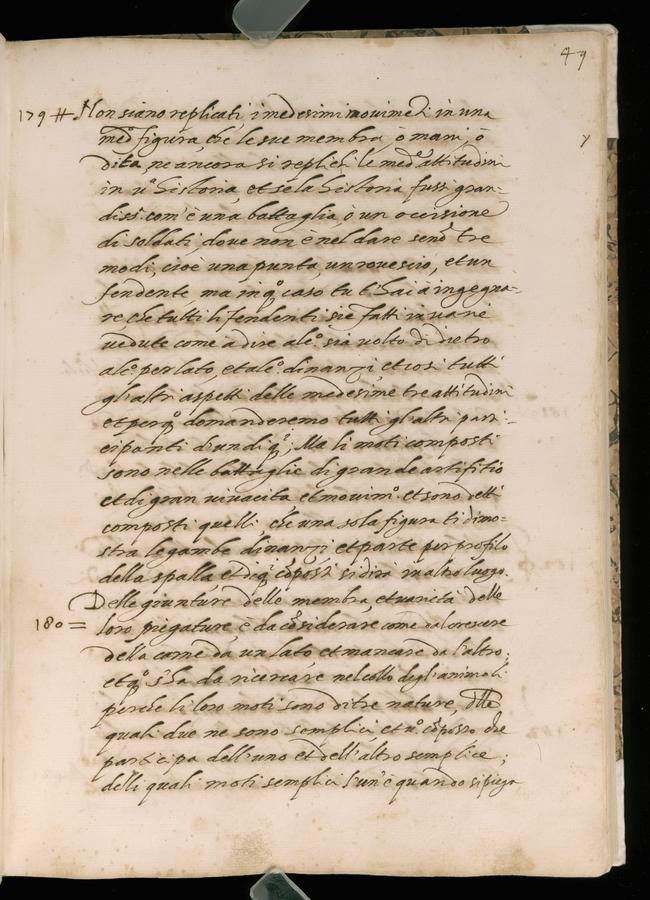 49
y
179 # Non siano replicati i medesimi movimenti in una
med.ª figura, che le sue membra, ò mani, ò
dita, ne ancora si replichi le med.ᵉ attitudini
in u.ª historia, et se la historia fussi gran-
diss. com'è una battaglia, ò un occisione
di soldati, dove non è nel dare senō tre
modi, cioè una punta, un rovescio, et un
fendente ma in q.º caso tu t'hai à ingegna-
re che tutti li fendenti sie fatti in varie
vedute come a dire alc.º sia volto di dietro
alc.º per lato, et alc.º dinanzi et così tutti
gl'altri aspetti delle medesime tre attitudini
et perq.º domanderemo tutti gl'altri parti-
cipanti d'un di q.ⁱ; Ma li moti composti
sono nelle battaglie di grande artifitio
et di gran vivacita et movim.º et sono detti
composti quelli che una sola figura ti dimo-
stra le gambe dinanzi et parte per profilo
della spalla et di q.ⁱ cōposti si dirà in altro luogo.
Delle giunture delle membra, et varietà delle
180 = loro piegature è da cōsiderare come dal crescere
della carne da un lato et mancare da l'altro;
et q.º s'ha da ricercare nel collo degl'animali
perche li loro moti sono di tre nature, dlle
quali due ne sono semplici, et u.º cōposto che
participa dell'uno et dell'altro semplice;
delli quali moti semplici l'un'è quando si piega